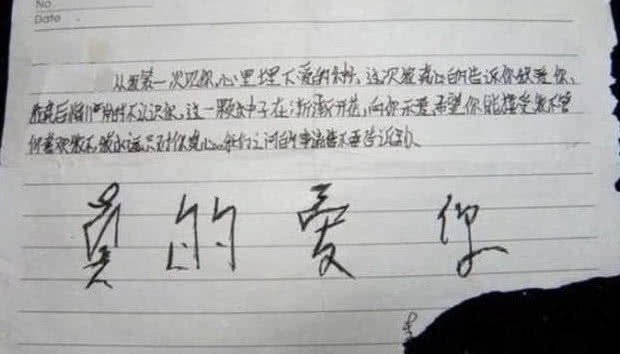 No
Date
从我第一次见你,心里埋下爱的种,这次我真心的告诉你我爱你,
的时不认识你,这一颗种子在渐渐开花,向你示爱,希望你能接受我不管
你喜欢我不,我永远只对你真心。我们之间的事请不要告诉别人
真的爱你